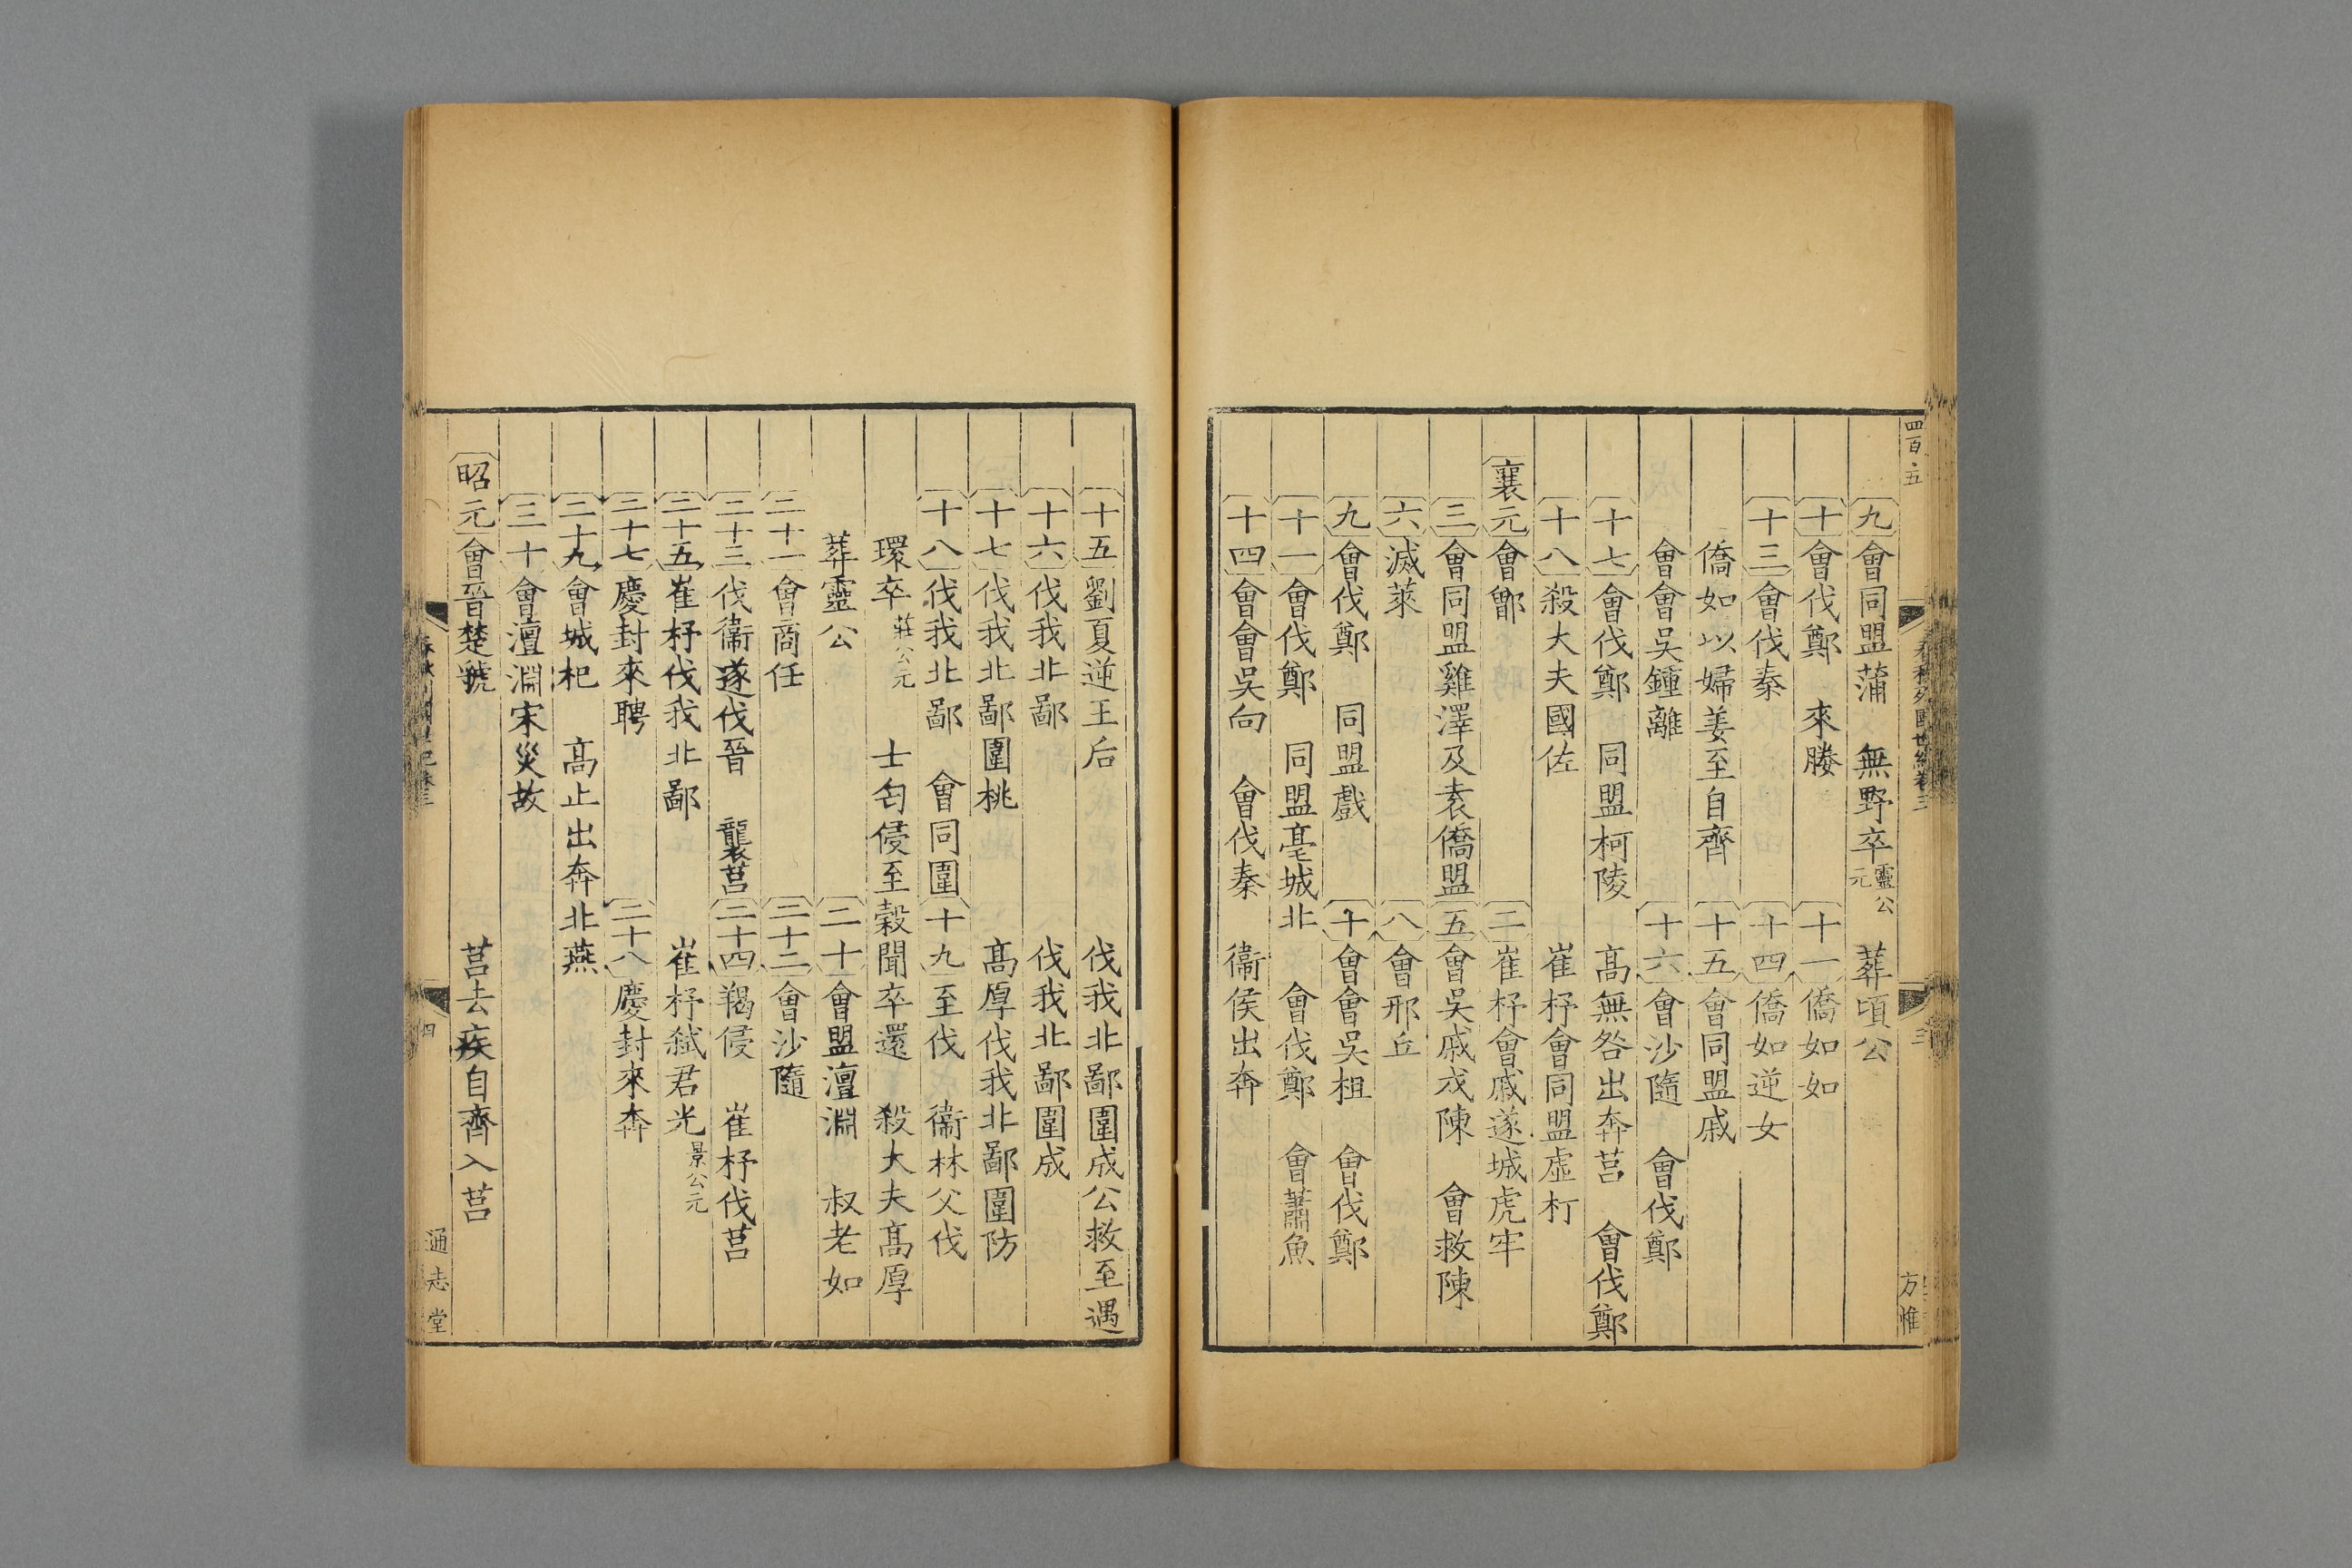 四百五
春秋列國世紀卷三
三
方惟
九 會同盟蒲 無野卒靈公元 葬頃公
十 會伐鄭 來媵 十一 僑如如
十三 會伐秦 十四 僑如逆女
僑如以婦姜至自齊 十五 會同盟戚
會會吳鍾離 十六 會沙隨 會伐鄭
十七 會伐鄭 同盟柯陵 高無咎出奔莒 會伐鄭
十八 殺大夫國佐 崔杼會同盟虛朾
襄元 會鄫 二 崔杼會戚遂城虎牢
三 會同盟雞澤及袁僑盟 五 會吳戚戍陳 會救陳
六 滅萊 八 會邢丘
九 會伐鄭 同盟戲 十 會會吳柤 會伐鄭
十一 會伐鄭 同盟亳城北 會伐鄭 會蕭魚
十四 會會吳向 會伐秦 衞侯出奔
十五 劉夏逆王后 伐我北鄙圍成公救至遇
十六 伐我北鄙 伐我北鄙圍成
十七 伐我北鄙圍桃 高厚伐我北鄙圍防
十八 伐我北鄙 會同圍 十九 至伐 衞林父伐
環卒莊公元 士匄侵至穀聞卒還 殺大夫高厚
葬靈公 二十 會盟澶淵 叔老如
二十一 會商任 二十二 會沙隨
二十三 伐衞遂伐晉 襲莒 二十四 羯侵 崔杼伐莒
二十五 崔杼伐我北鄙 崔杼弑君光景公元
二十七 慶封來聘 二十八 慶封來奔
二十九 會城杞 高止出奔北燕
三十 會澶淵宋災故
昭元 會晉楚虢 莒去疾自齊入莒
四
通志堂